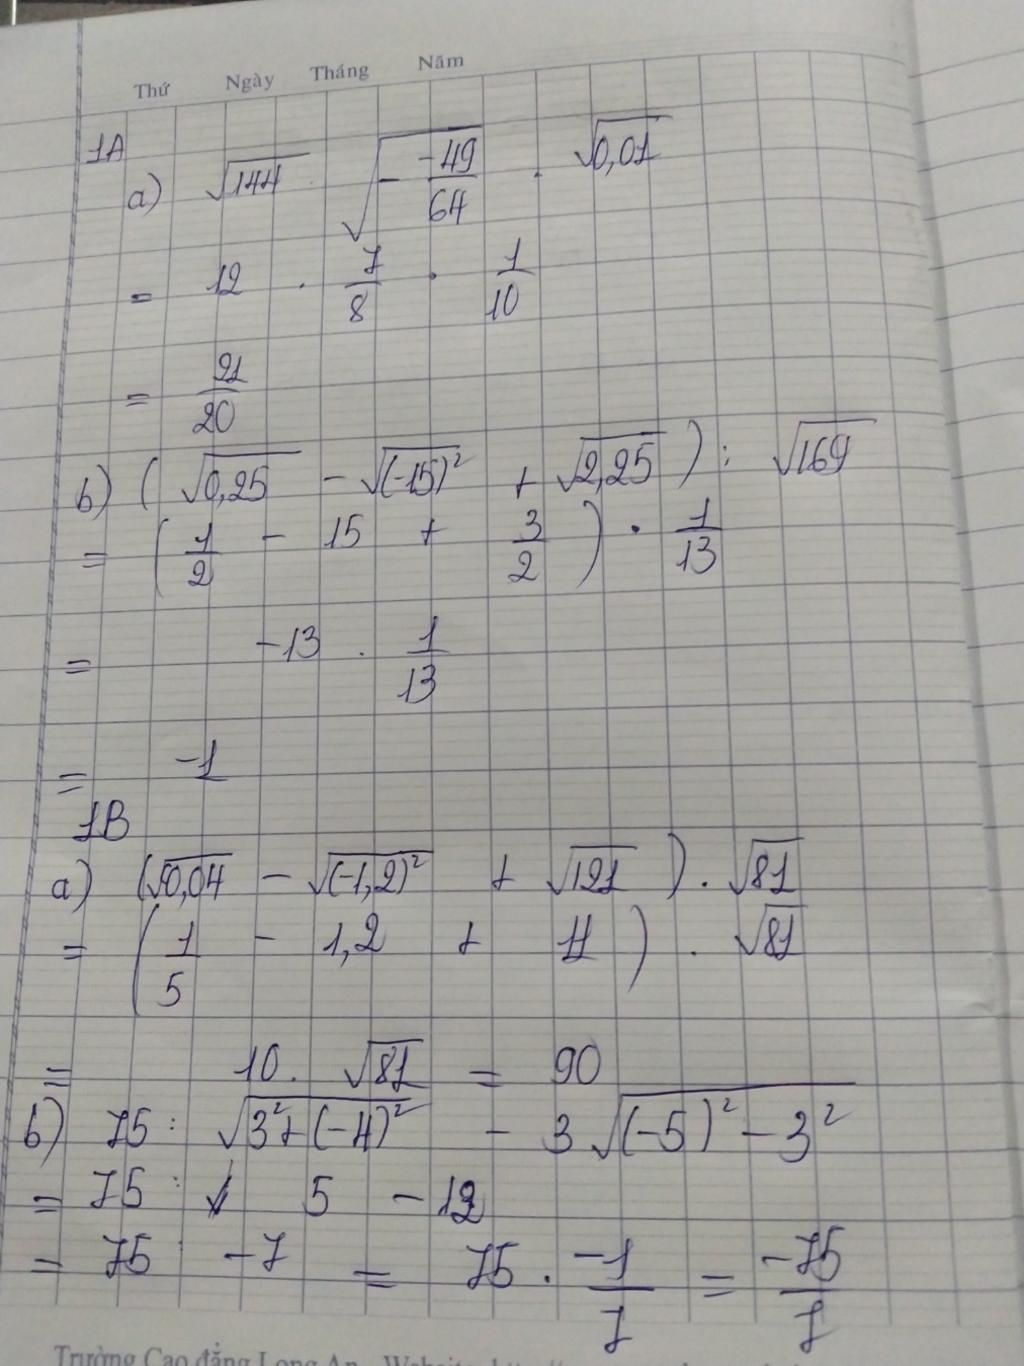 Thứ Ngày Tháng Năm
1A
a) √144 √(- -49/64) . √0,01
= 12 . 7/8 . 1/10
= 21/20
b) (√0,25 - √(-15)² + √2,25) : √169
= (1/2 - 15 + 3/2) . 1/13
= -13 . 1/13
= -1
1B
a) (√0,04 - √(-1,2)² + √121) . √81
= (1/5 - 1,2 + 11) . √81
= 10. √81 = 90
b) 75 : √(3² + (-4)²) - 3√((-5)² - 3²)
= 75 : 5 - 12
= 75 : -7 = 75 . -1/7 = -75/7
Trường Cao đẳng Long An - Website: http://